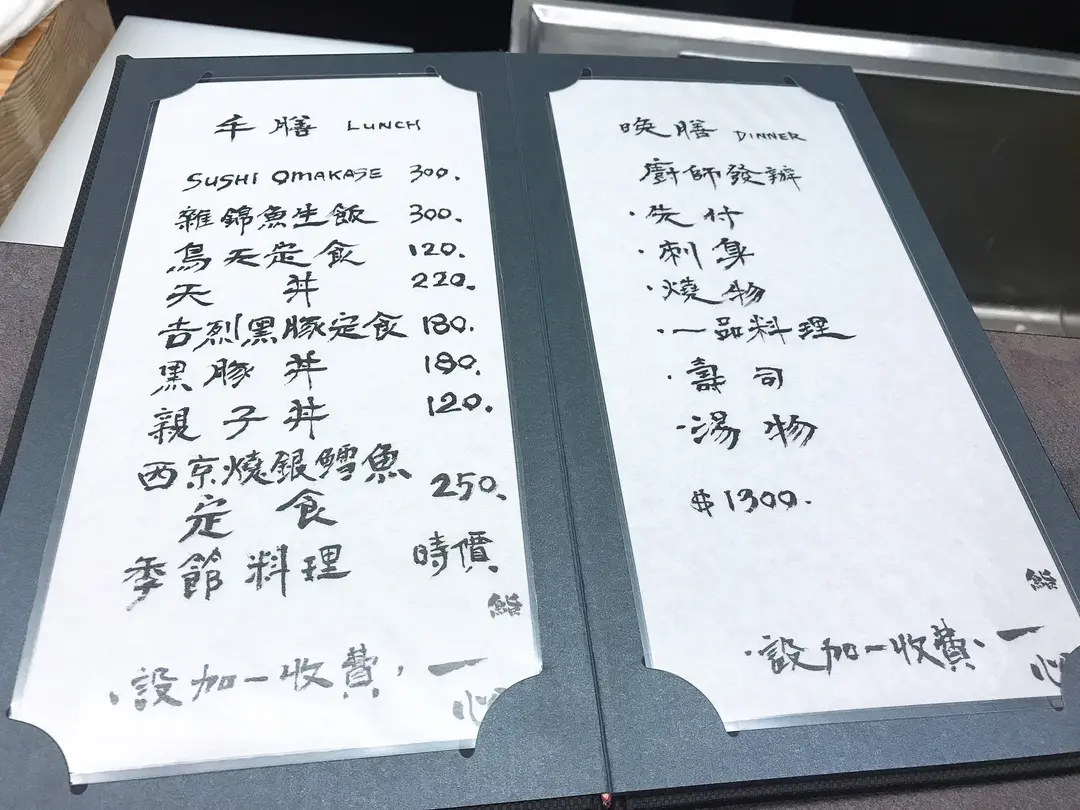 午膳 LUNCH
SUSHI OMAKASE 300.
雜錦魚生飯 300.
烏天定食 120.
天丼 220.
吉烈黑豚定食 180.
黑豚丼 180.
親子丼 120.
西京燒銀鱈魚
定食 250.
季節料理 時價
鮨
·設加一收費· 一
心
晚膳 DINNER
廚師發辦
·先付
·刺身
·燒物
·一品料理
·壽司
·湯物
$1300.
鮨
·設加一收費· 一
心